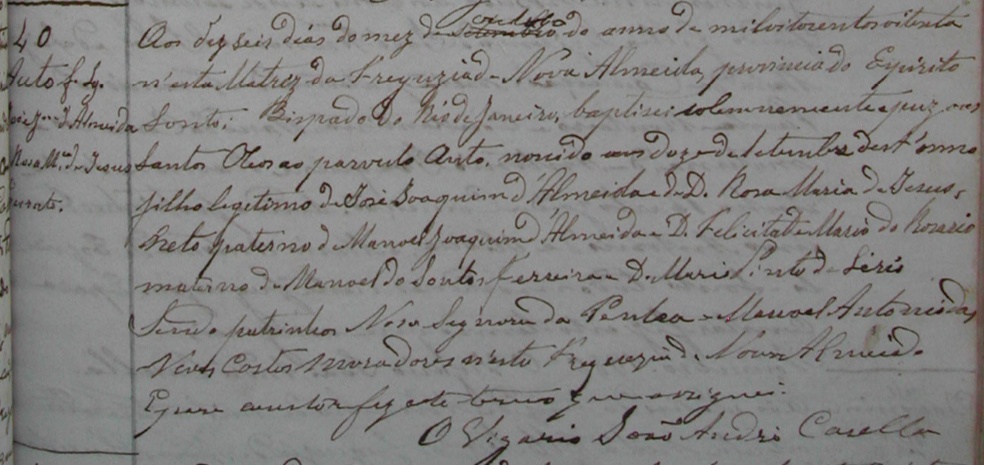 40
Auto f. lg.
José Jm. d'Almeida
Rosa Ma. de Jesus
Outubro
Aos dezseis dias do mez de Setembro do anno de mil oitocentos oitenta
n'esta Matriz da Freguzia de Nova Almeida, provincia do Espirito
Santo; Bispado do Rio de Janeiro, baptisei solemnemente e puz os
Santos Oleos ao parvulo Auto, nascido aos doze de Setembro dest'anno
filho legitimo de José Joaquim d'Almeida e de D. Rosa Maria de Jesus,
Neto paterno de Manoel Joaquim d'Almeida e D. Felicidade Maria do Rosario
materno de Manoel dos Santos Ferreira e D. Maria Pinto de
Sendo padrinhos Nossa Senhora da Penha e Manoel Antonio das
Neves Castro moradores n'esta Freguezia de Nova Almeida
E para constar fiz este termo que assignei.
O Vigario João André Casella